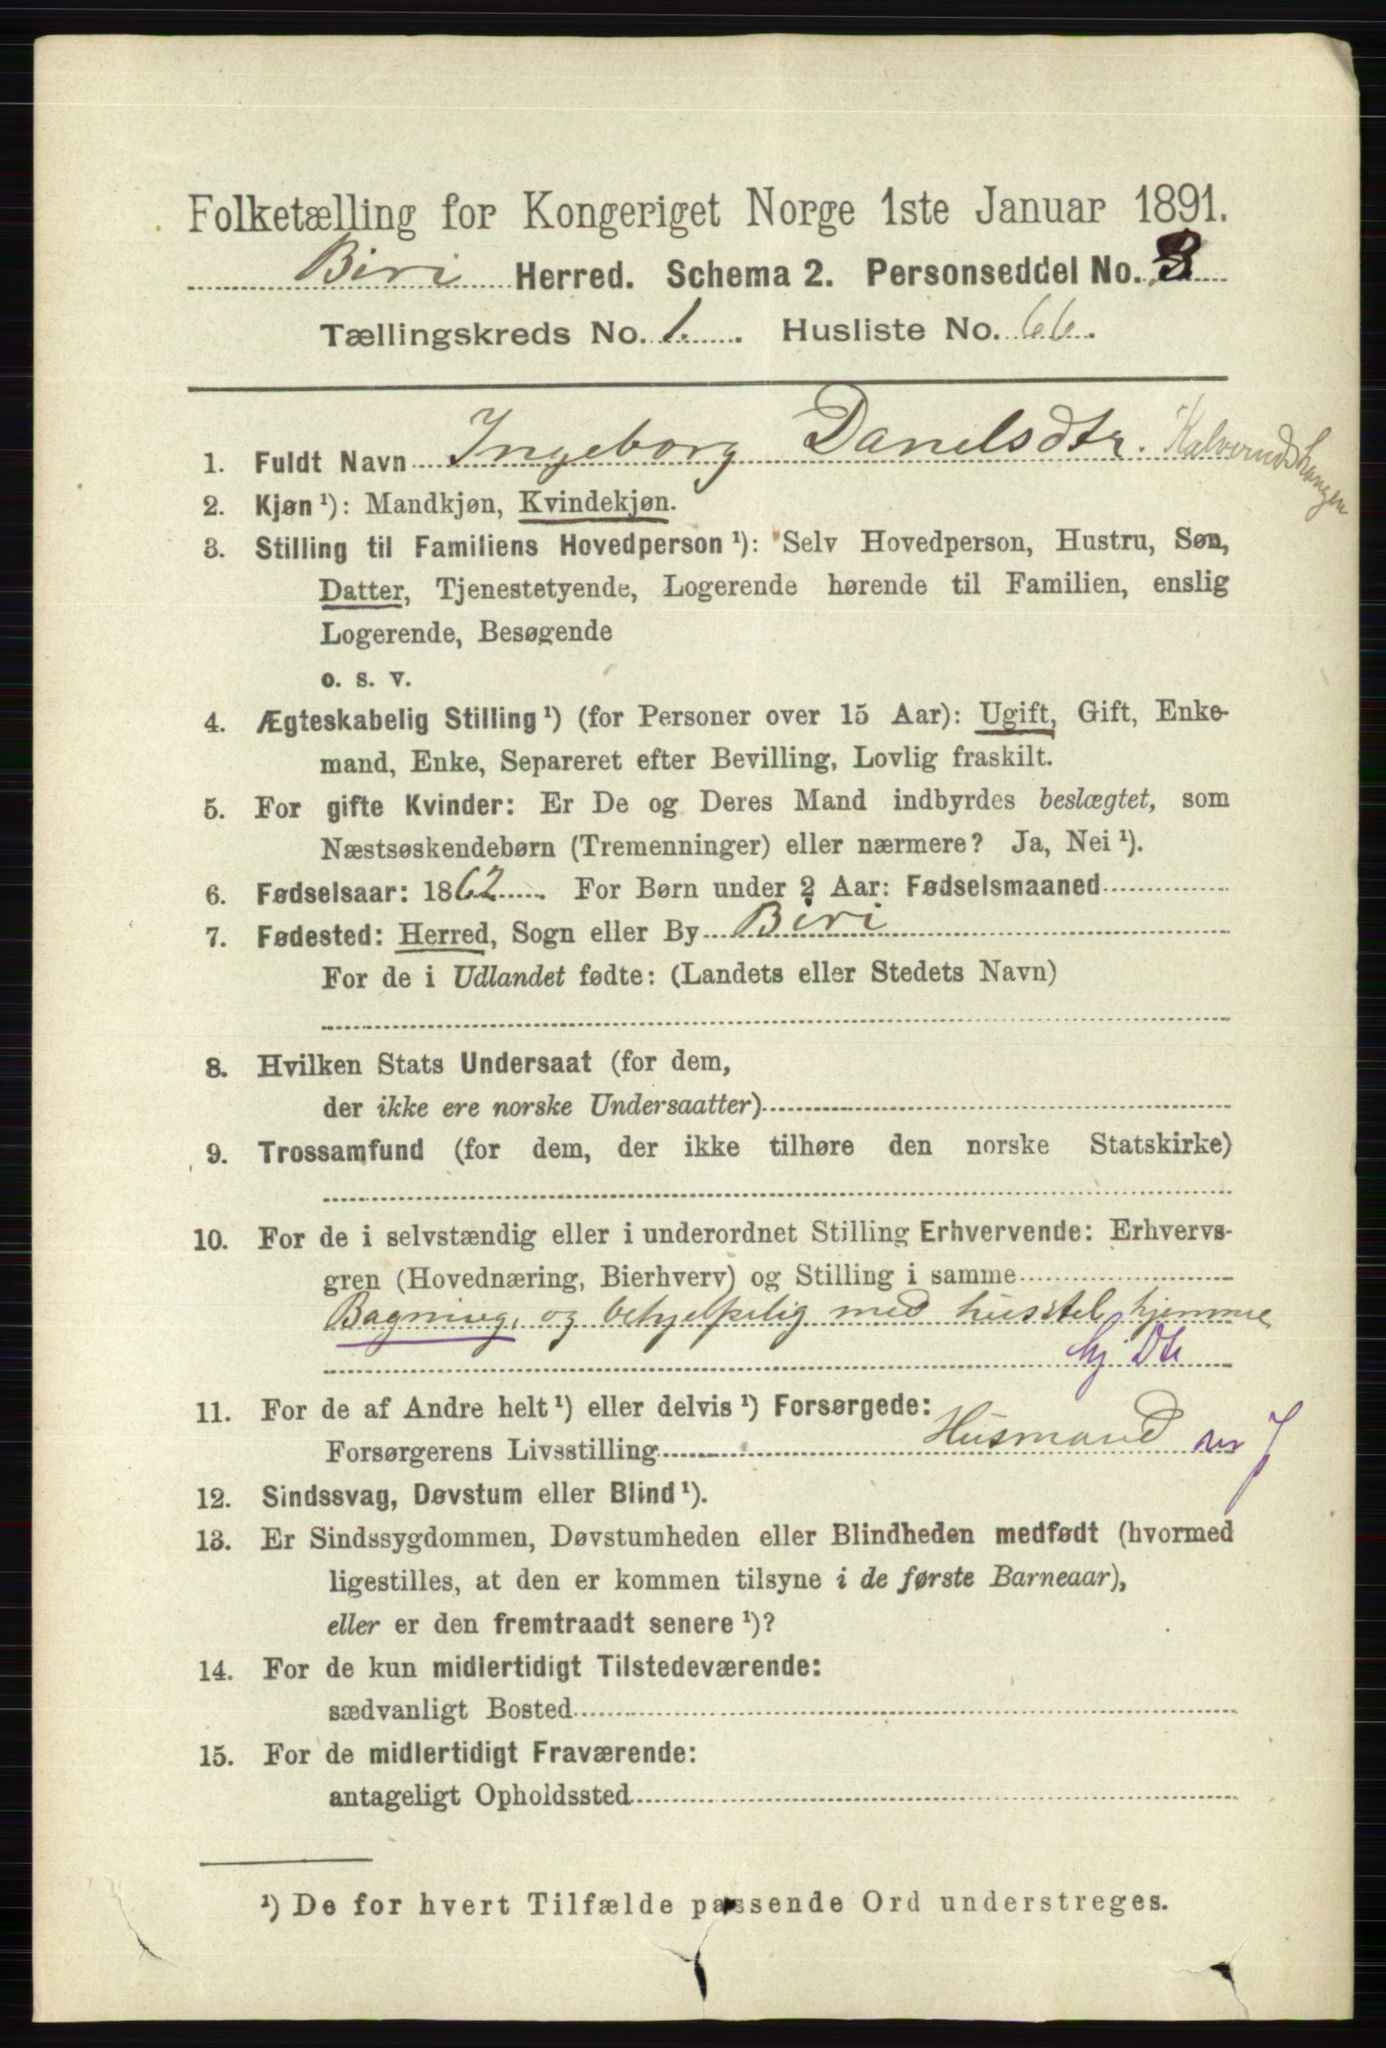 Folketælling for Kongeriget Norge 1ste Januar 1891.
Biri Herred. Schema 2. Personseddel No. 3
Tællingskreds No. 1. Husliste No. 66.
1. Fuldt Navn Ingeborg Danelsdtr.
2. Kjøn ¹): Mandkjøn, Kvindekjøn.
3. Stilling til Familiens Hovedperson ¹): Selv Hovedperson, Hustru, Søn,
Datter, Tjenestetyende, Logerende hørende til Familien, enslig
Logerende, Besøgende
o. s. v.
4. Ægteskabelig Stilling ¹) (for Personer over 15 Aar): Ugift, Gift, Enke-
mand, Enke, Separeret efter Bevilling, Lovlig fraskilt.
5. For gifte Kvinder: Er De og Deres Mand indbyrdes beslægtet, som
Næstsøskendebørn (Tremenninger) eller nærmere? Ja, Nei ¹).
6. Fødselsaar: 1862. For Børn under 2 Aar: Fødselsmaaned
7. Fødested: Herred, Sogn eller By Biri
For de i Udlandet fødte: (Landets eller Stedets Navn)
8. Hvilken Stats Undersaat (for dem,
der ikke ere norske Undersaatter)
9. Trossamfund (for dem, der ikke tilhøre den norske Statskirke)
10. For de i selvstændig eller i underordnet Stilling Erhvervende: Erhvervs-
gren (Hovednæring, Bierhverv) og Stilling i samme
Bagning, og behjelpelig med husstel hjemme
hj Dtr
11. For de af Andre helt ¹) eller delvis ¹) Forsørgede:
Forsørgerens Livsstilling Husmand
12. Sindssvag, Døvstum eller Blind ¹).
13. Er Sindssygdommen, Døvstumheden eller Blindheden medfødt (hvormed
ligestilles, at den er kommen tilsyne i de første Barneaar),
eller er den fremtraadt senere ¹)?
14. For de kun midlertidigt Tilstedeværende:
sædvanligt Bosted
15. For de midlertidigt Fraværende:
antageligt Opholdssted
¹) De for hvert Tilfælde passende Ord understreges.